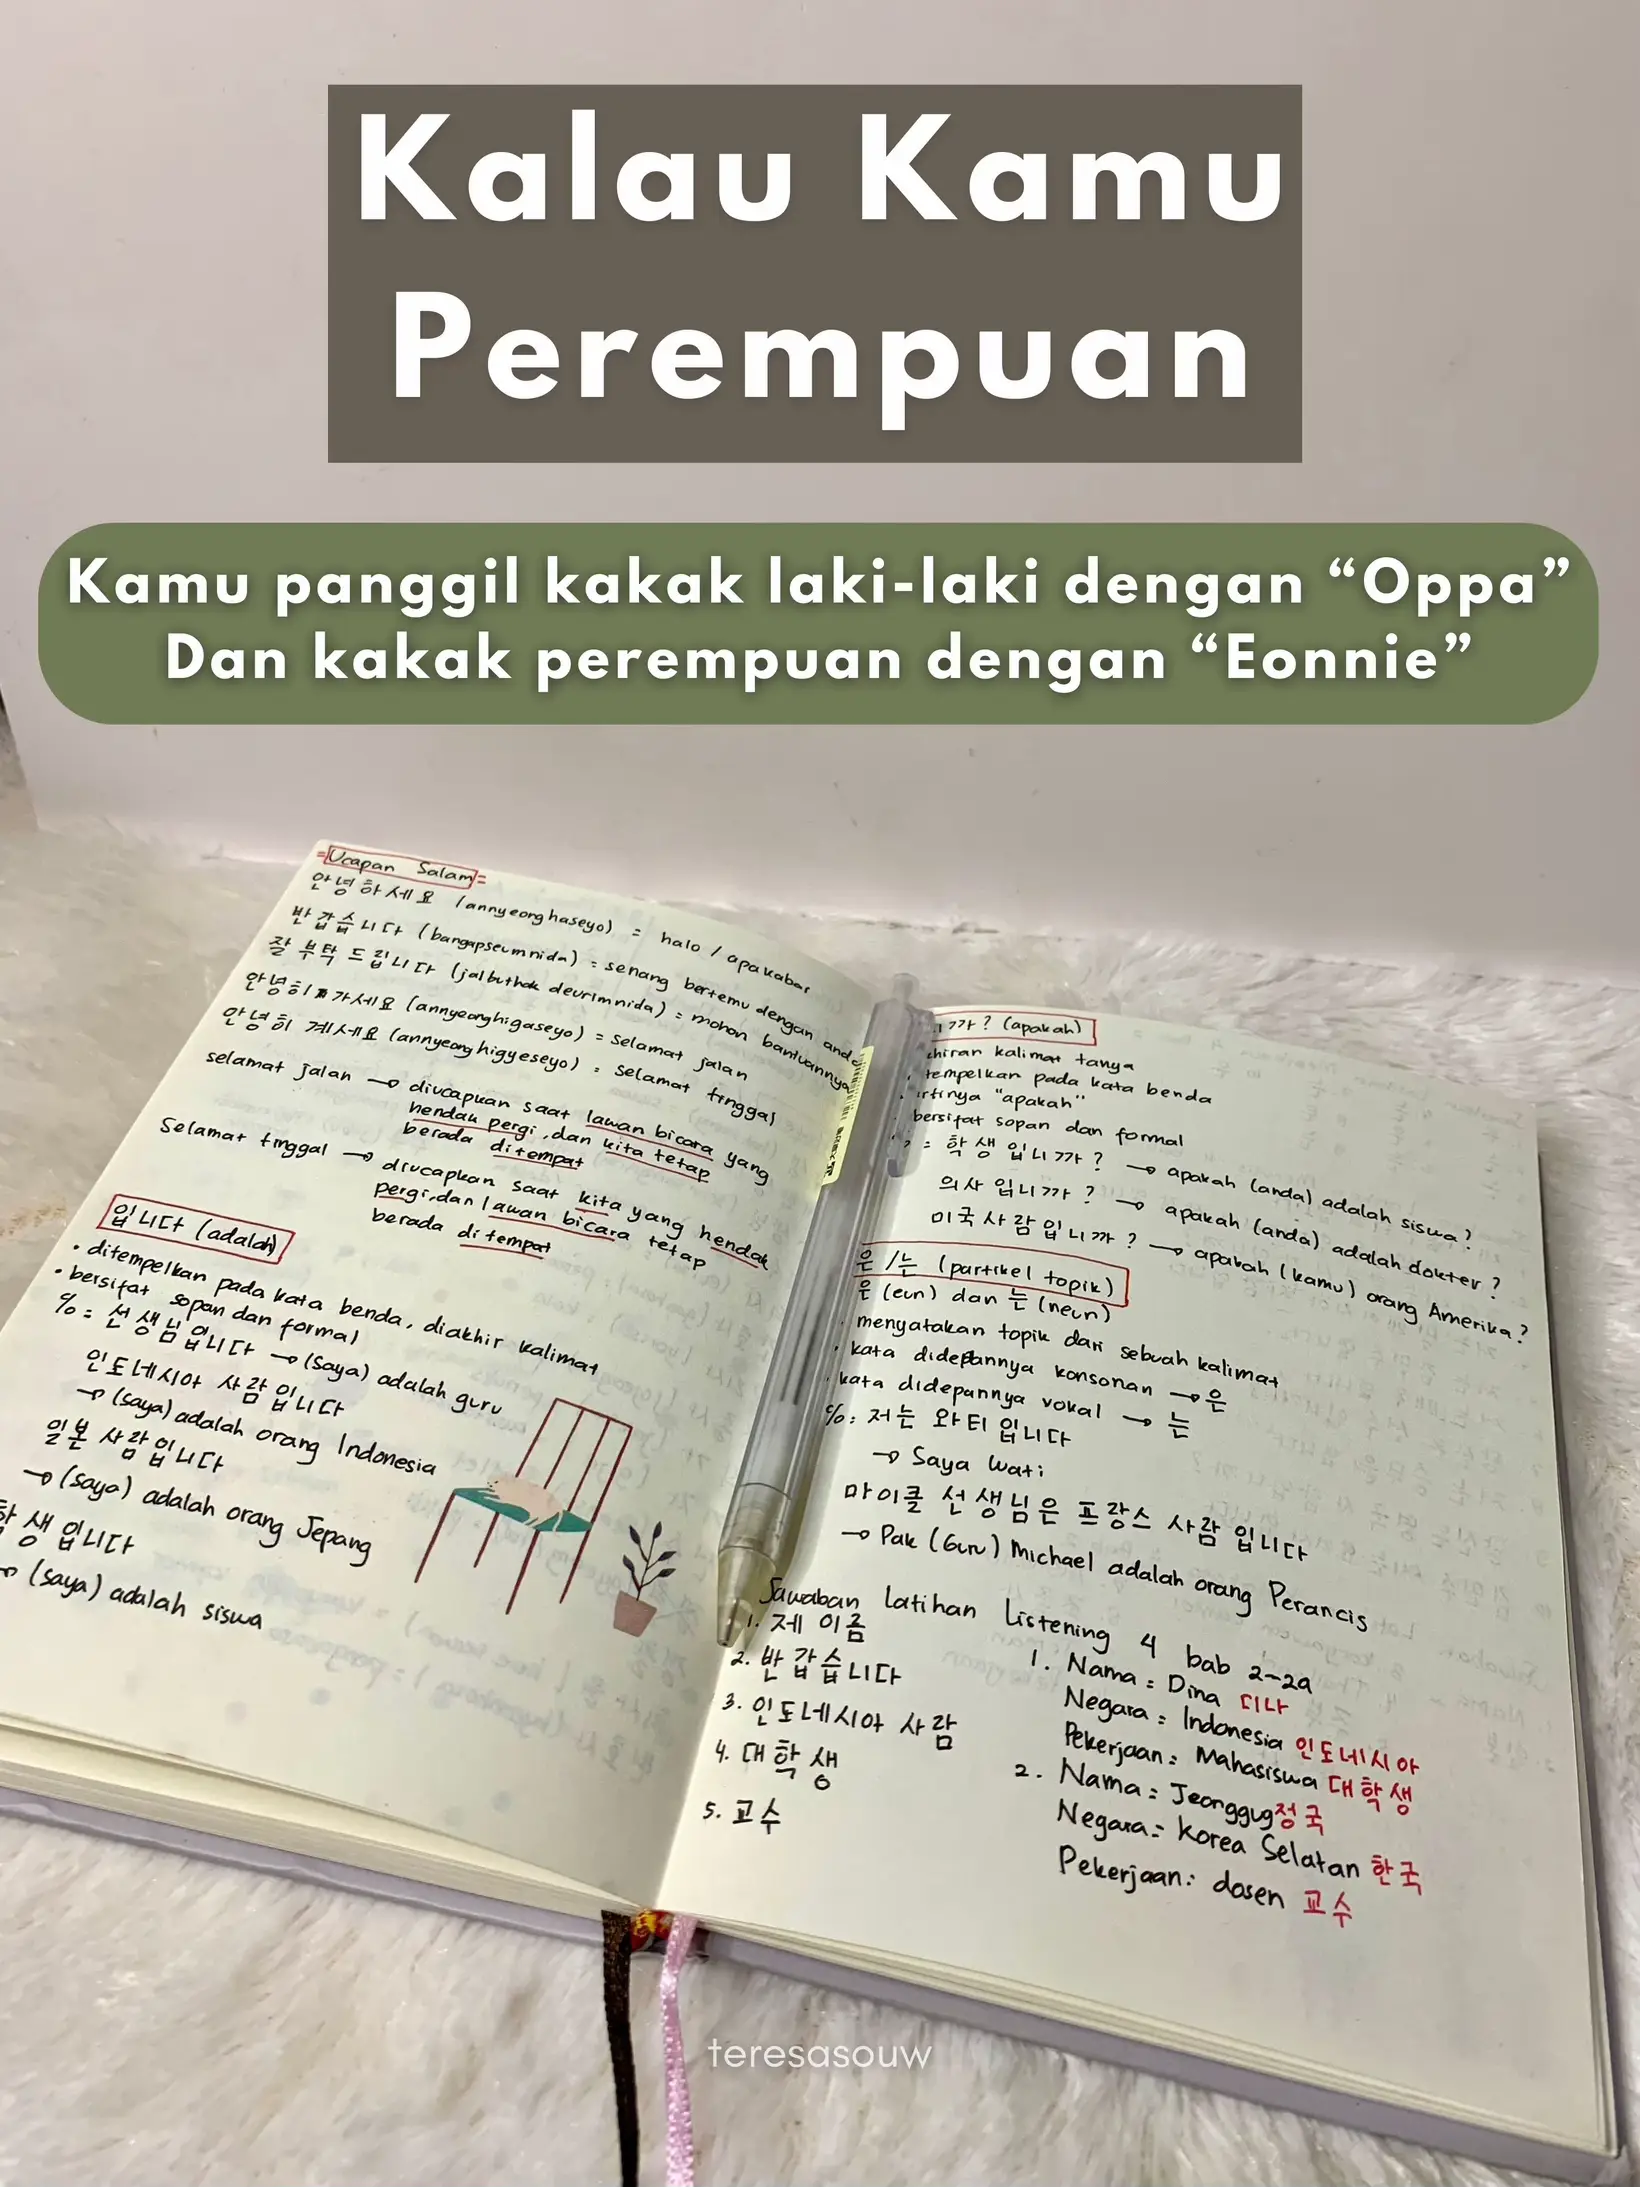 Kalau Kamu
Perempuan
Kamu panggil kakak laki-laki dengan “Oppa”
Dan kakak perempuan dengan “Eonnie”
=Ucapan Salam=
안녕하세요 (annyeonghaseyo) = halo / apakabar
반갑습니다 (bangapseumnida) = senang bertemu dengan anda
잘 부탁 드립니다 (jalbuthak deurimnida) = mohon bantuannya
안녕히 가세요 (annyeonghigaseyo) = selamat jalan
안녕히 계세요 (annyeonghigyeseyo) = selamat tinggal
selamat jalan → diucapkan saat lawan bicara yang
hendak pergi, dan kita tetap
berada ditempat
Selamat tinggal → diucapkan saat kita yang hendak
pergi, dan lawan bicara tetap
berada ditempat
입니다 (adalah)
• ditempelkan pada kata benda, diakhir kalimat
• bersifat sopan dan formal
%= 선생님입니다 → (saya) adalah guru
인도네시아 사람입니다
→ (saya) adalah orang Indonesia
일본 사람입니다
→ (saya) adalah orang Jepang
학생입니다
→ (saya) adalah siswa
니까? (apakah)
khiran kalimat tanya
tempelkan pada kata benda
rtinya "apakah"
bersifat sopan dan formal
= 학생입니까? → apakah (anda) adalah siswa?
의사입니까? → apakah (anda) adalah dokter?
미국사람입니까? → apakah (kamu) orang Amerika?
은/는 (partikel topik)
은 (eun) dan 는 (neun)
menyatakan topik dari sebuah kalimat
• kata didepannya konsonan → 은
• kata didepannya vokal → 는
%: 저는 와티입니다
→ Saya Wati
마이클 선생님은 프랑스 사람입니다
→ Pak (Guru) Michael adalah orang Perancis
Jawaban Latihan Listening 4 bab 2-2a
1. 제 이름
2. 반갑습니다
3. 인도네시아 사람
4. 대학생
5. 교수
1. Nama = Dina 디나
Negara = Indonesia 인도네시아
Pekerjaan = Mahasiswa 대학생
2. Nama = Jeonggug 정국
Negara = Korea Selatan 한국
Pekerjaan: dosen 교수
teresasouw